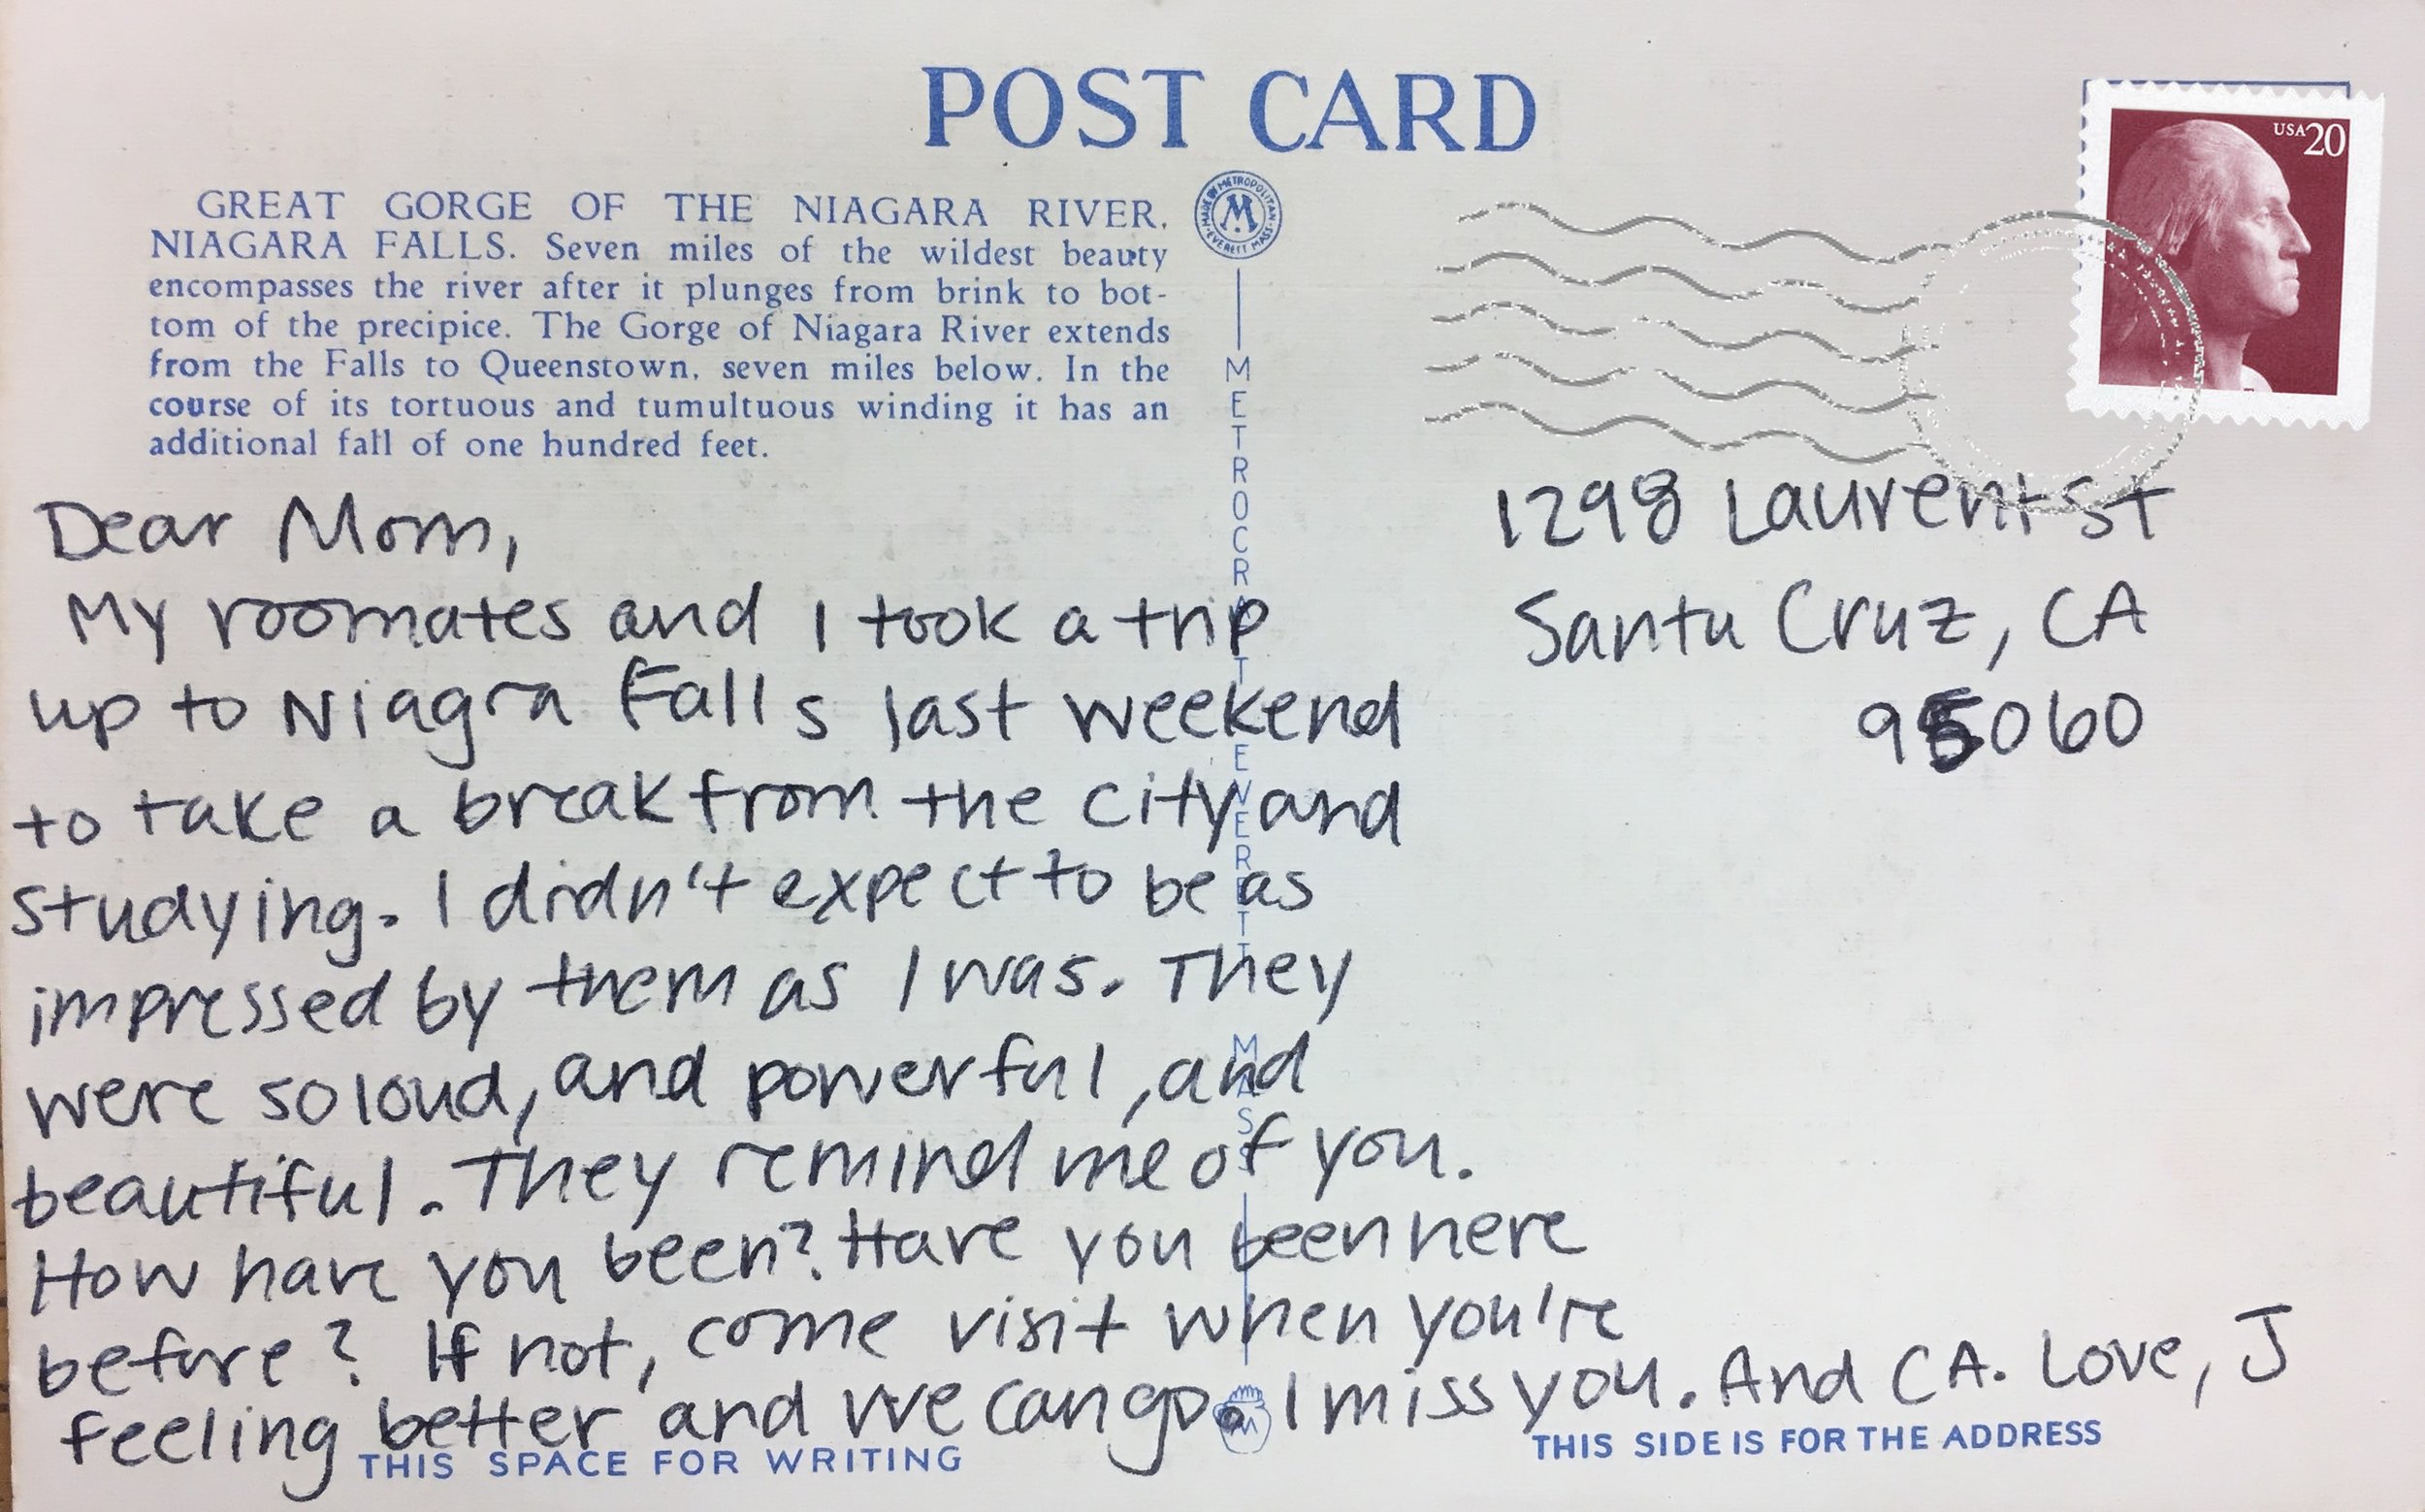 POST CARD
USA 20
GREAT GORGE OF THE NIAGARA RIVER,
NIAGARA FALLS. Seven miles of the wildest beauty
encompasses the river after it plunges from brink to bot-
tom of the precipice. The Gorge of Niagara River extends
from the Falls to Queenstown, seven miles below. In the
course of its tortuous and tumultuous winding it has an
additional fall of one hundred feet.
MADE BY METROPOLITAN
M
EVERETT MASS.
Dear Mom,
My roomates and I took a trip
up to Niagra Falls last weekend
to take a break from the city and
studying. I didn't expect to be as
impressed by them as I was. They
were so loud, and powerful, and
beautiful. They remind me of you.
How have you been? Have you been here
before? If not, come visit when you're
feeling better and we can go. I miss you. And CA. Love, J
THIS SPACE FOR WRITING
METROCRAFT EVERETT MASS
1298 Laurent St
Santa Cruz, CA
95060
THIS SIDE IS FOR THE ADDRESS